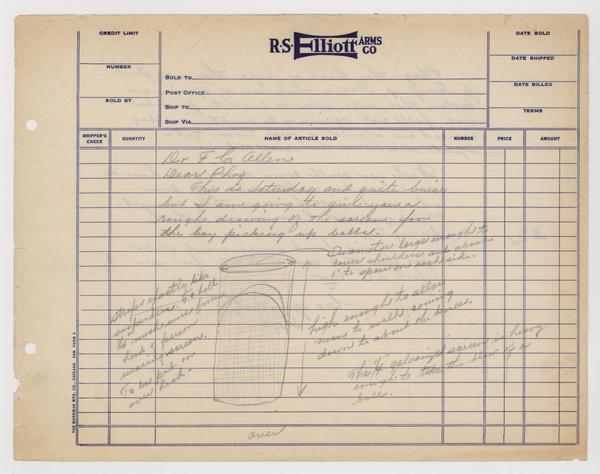 CREDIT LIMIT
NUMBER
SOLD BY
R·S·Elliott ARMS CO
SOLD TO
POST OFFICE
SHIP TO
SHIP VIA
DATE SOLD
DATE SHIPPED
DATE BILLED
TERMS
SHIPPER'S CHECK
QUANTITY
NAME OF ARTICLE SOLD
NUMBER
PRICE
AMOUNT
Dr F C Allen
Dear Phog
This is Saturday and quite busy
but I am going to give you a
rough drawing of the screen for
the boy picking up balls.
Diameter large enough to
cover shoulders and about
1" to spare on each side.
straps exactly like
suspenders. To hold
1/4" mesh wire from
head of person
wearing screen.
To be put on
over head-
high enough to allow
man to walk, coming
down to about the knees.
The 1/4" galvanized screen is heavy
enough to take the blow of a
ball.
over
THE WORKMAN MFG. CO., CHICAGO